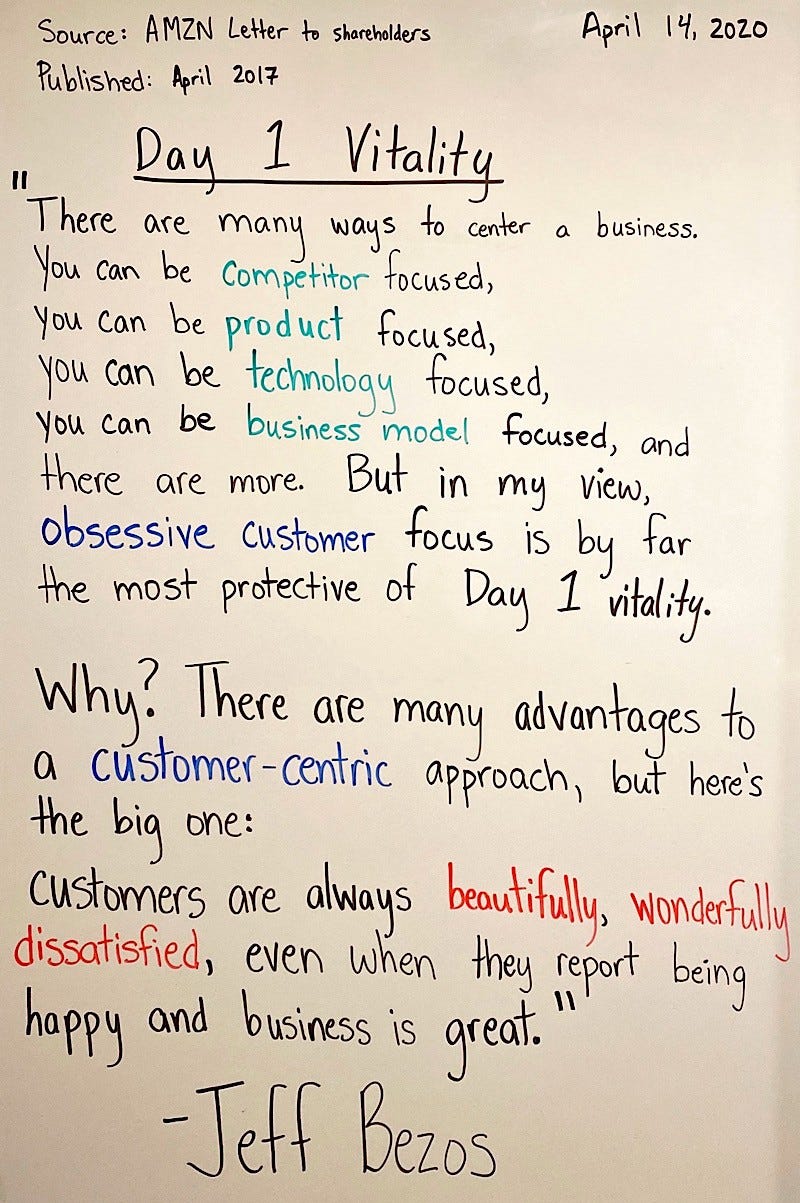 Source: AMZN Letter to shareholders April 14, 2020
Published: April 2017
Day 1 Vitality
"There are many ways to center a business.
You can be competitor focused,
you can be product focused,
you can be technology focused,
you can be business model focused, and
there are more. But in my view,
obsessive customer focus is by far
the most protective of Day 1 vitality.
Why? There are many advantages to
a customer-centric approach, but here's
the big one:
customers are always beautifully, wonderfully
dissatisfied, even when they report being
happy and business is great."
-Jeff Bezos